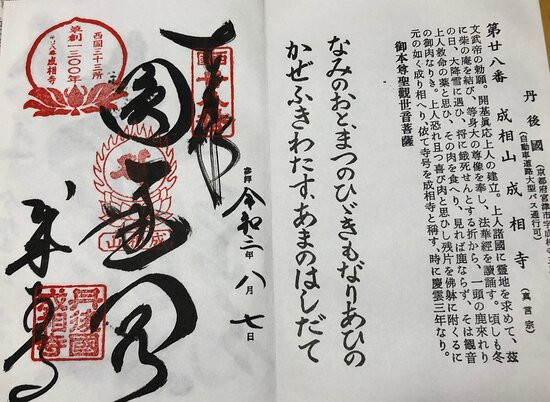 丹後國
(京都府宮津市字成
(自動車道路大型バス通行可)
第廿八番 成相山 成相寺 (真言宗)
文武帝の勅願。開基眞応上人の建立。上人諸國に靈地を求めて、茲
に柴の庵を結び、等身大の尊像を奉し、法華經を讀誦す。頃しも冬
の日、大降雪に遇ひ、将に餓死せんとする折から、一頭の鹿來れり
上人救命の薬と思ひ、その肉を食へり、見れば鹿ならず、そは観音
の御肉なりき。上人恐れ且つ喜び肉と思ひし残片を佛躰に附くるに
元の如く成り相へり、依て寺号を成相寺と稱す、時に慶雲三年なり。
御本尊聖観世音菩薩
なみのおと、まつのひゞきもなりあひの
かぜふきわたす、あまのはしだて
令和二年八月七日
西国三十三所
草創一三〇〇年
成相寺
丹後國
成相寺